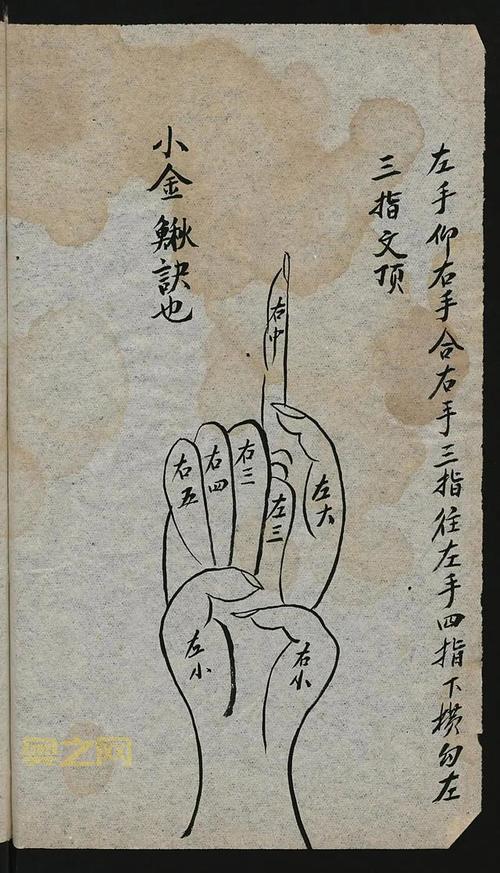 左手仰右手合右手三指往左手四指下横勾左
三指文顶
小金鳅訣也
右中
右三
右四
右五
左三
左大
左小
右小
奥之网